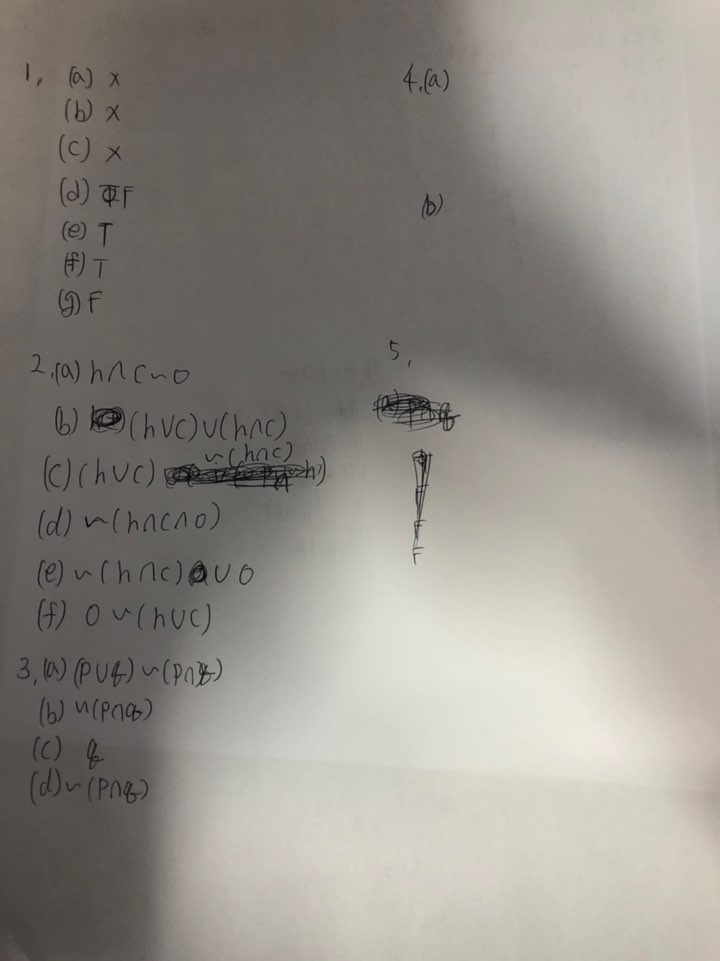 1. (a) x
(b) x
(c) x
(d) F
(e) T
(f) T
(g) F
2.(a) h∩c~o
(b) (h∪c)∪(h∩c)
(c) (h∪c) ~(h∩c)
(d) ~(h∩c∩o)
(e) ~(h∩c)∪o
(f) o~(h∪c)
3.(a) (p∪q)~(p∩q)
(b) ~(p∩q)
(c) q
(d) ~(p∩q)
4.(a)
(b)
5.
F
F